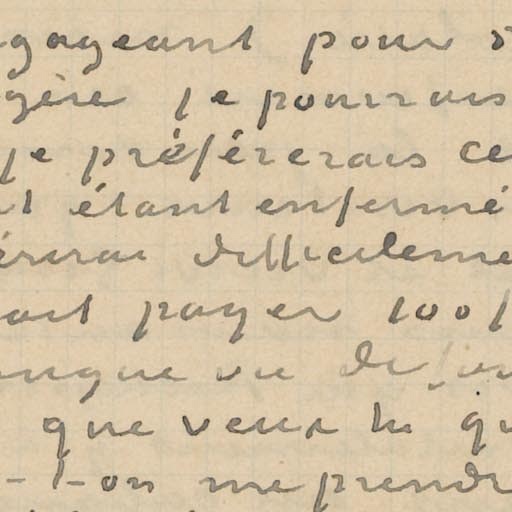 gageant pour
gère je pourrais
je préférerais ce
t étant enfermé
difficileme
ait payer 100f
que veux tu qu
-t-on me prendr